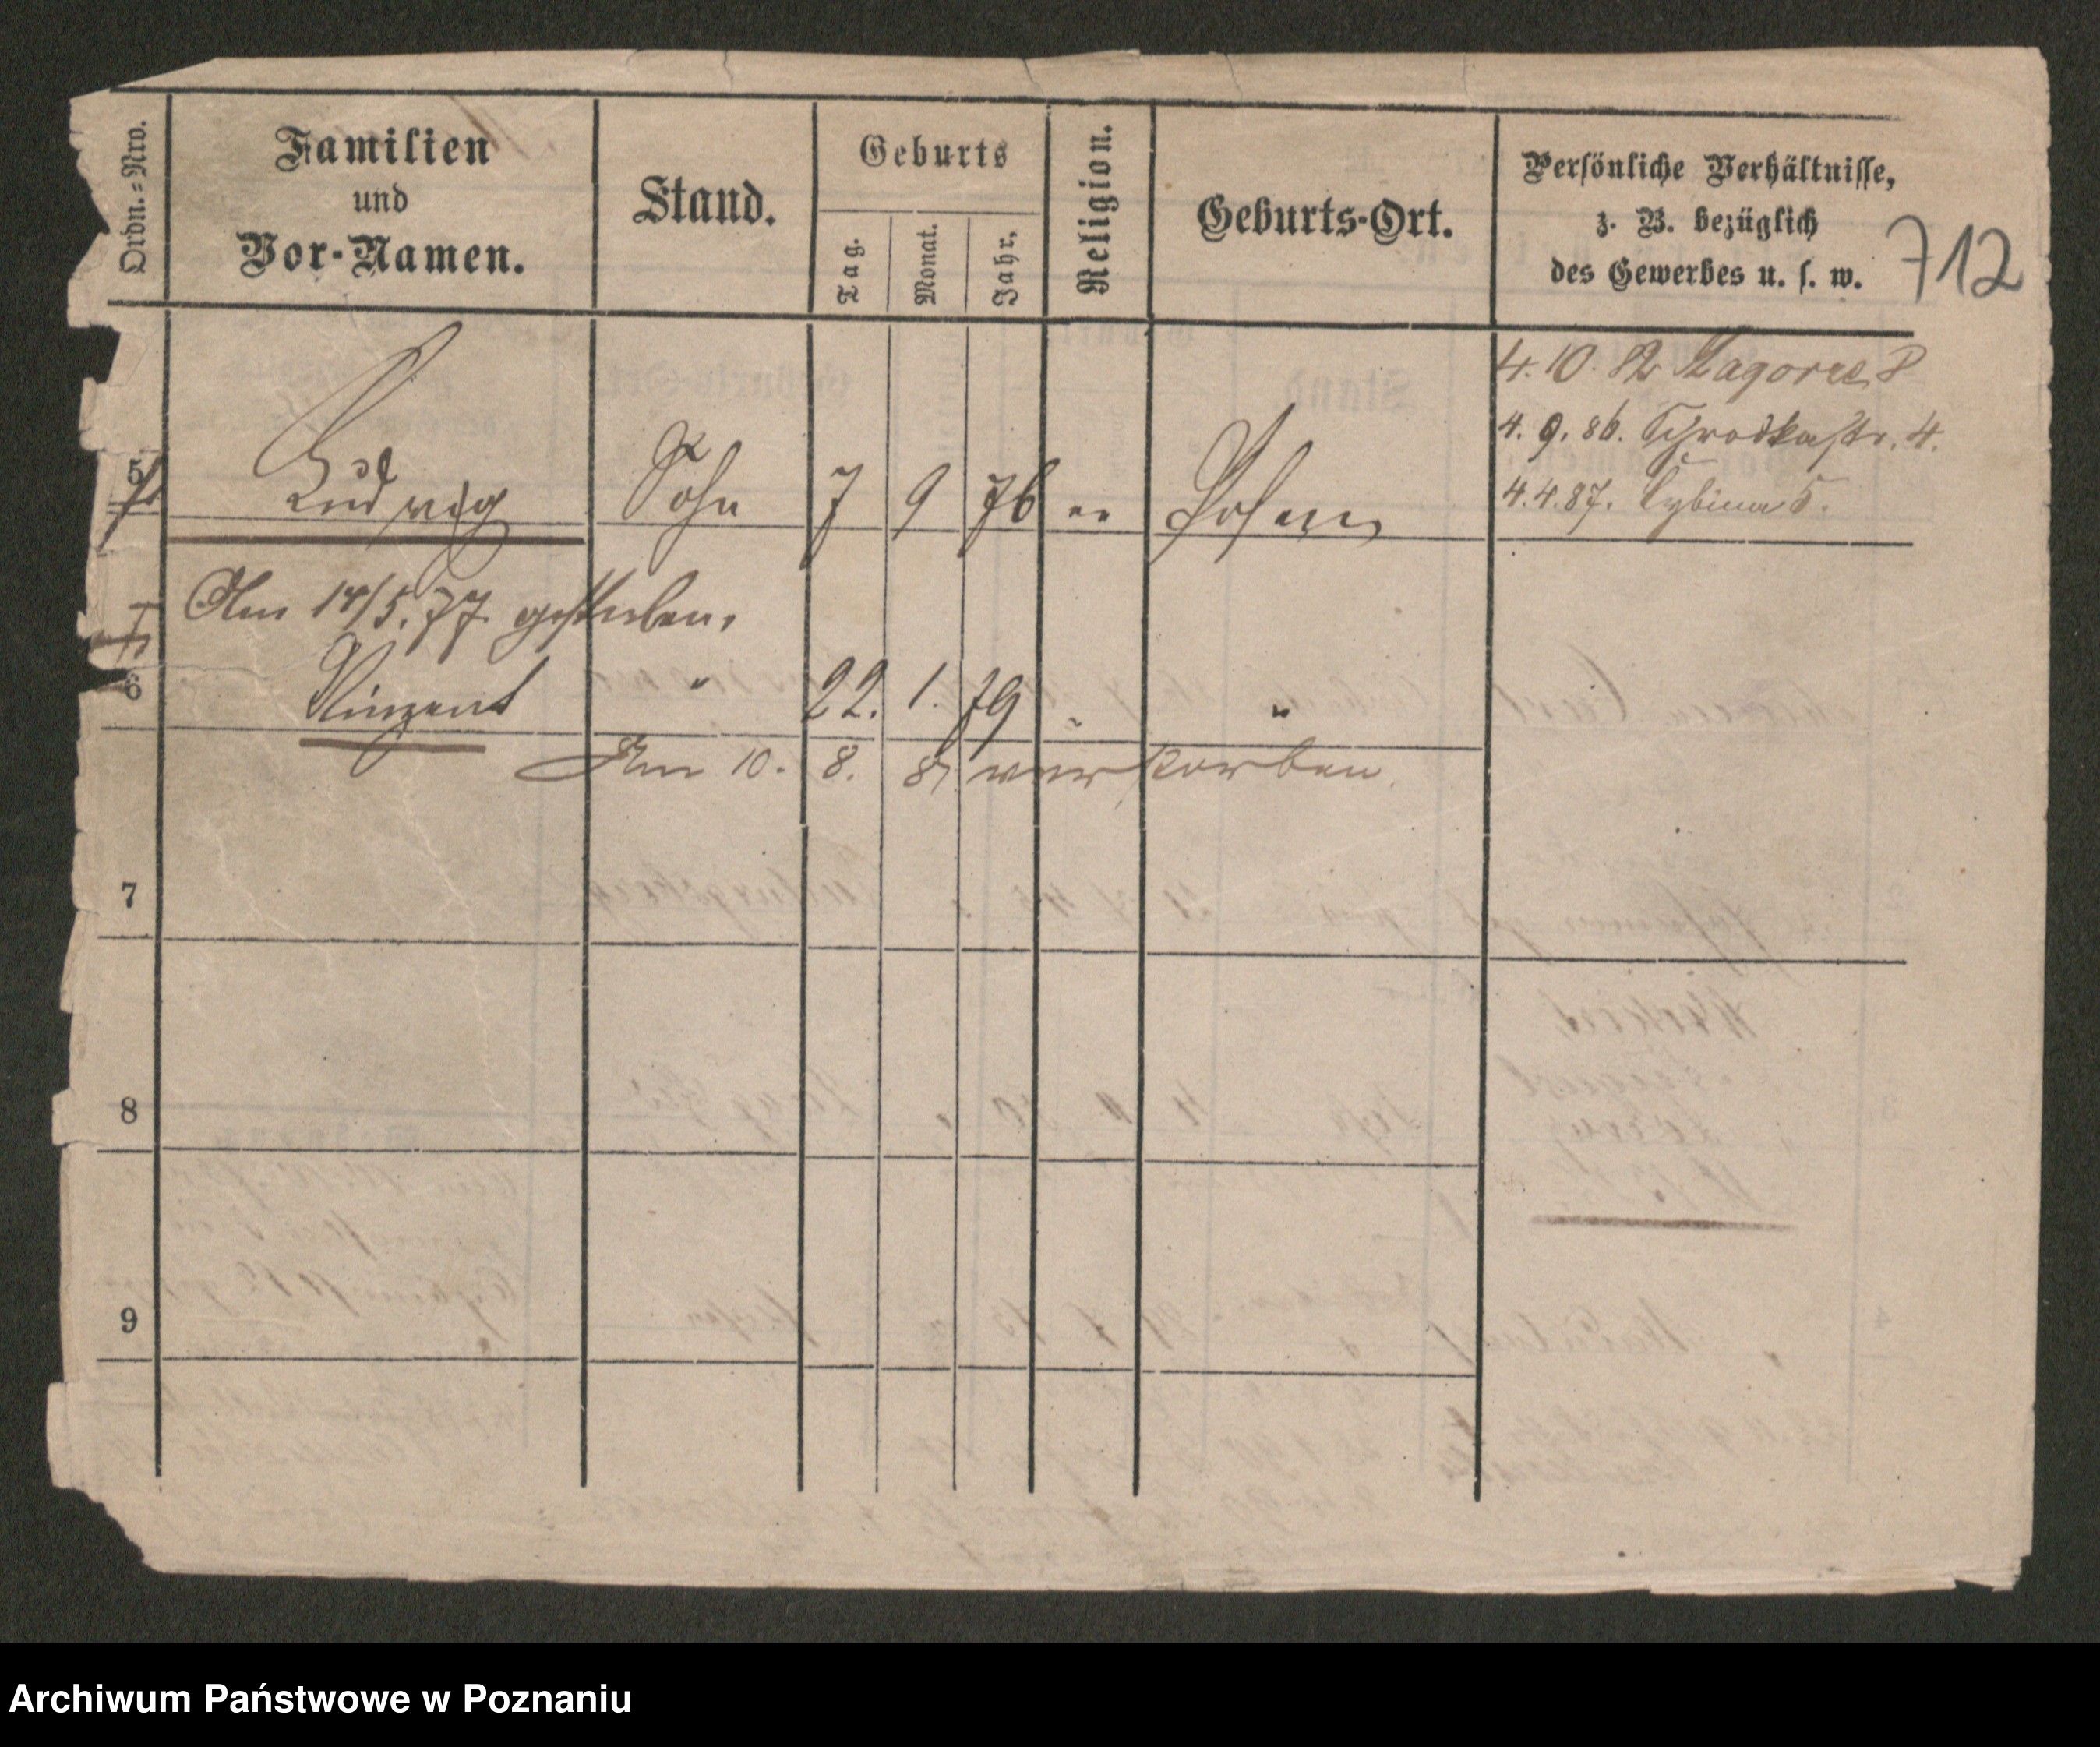 Ordn.=Nro.
Familien
und
Vor-Namen.
Stand.
Geburts
Tag.
Monat.
Jahr.
Religion.
Geburts-Ort.
Persönliche Verhältnisse,
z. B. bezüglich
des Gewerbes u. s. w.
712
4. 10. 82 Zagorze 8
4. 9. 86. Schrodkastr. 4.
4. 4. 87. Cybina 5.
5 Ludwig Sohn 7 9 76 " Posen
Am 14/5. 77. gestorben.
6 Vinzent " 22. 1. 79 " "
Am 10. 8. 87 verstorben.
7
8
9
Archiwum Państwowe w Poznaniu